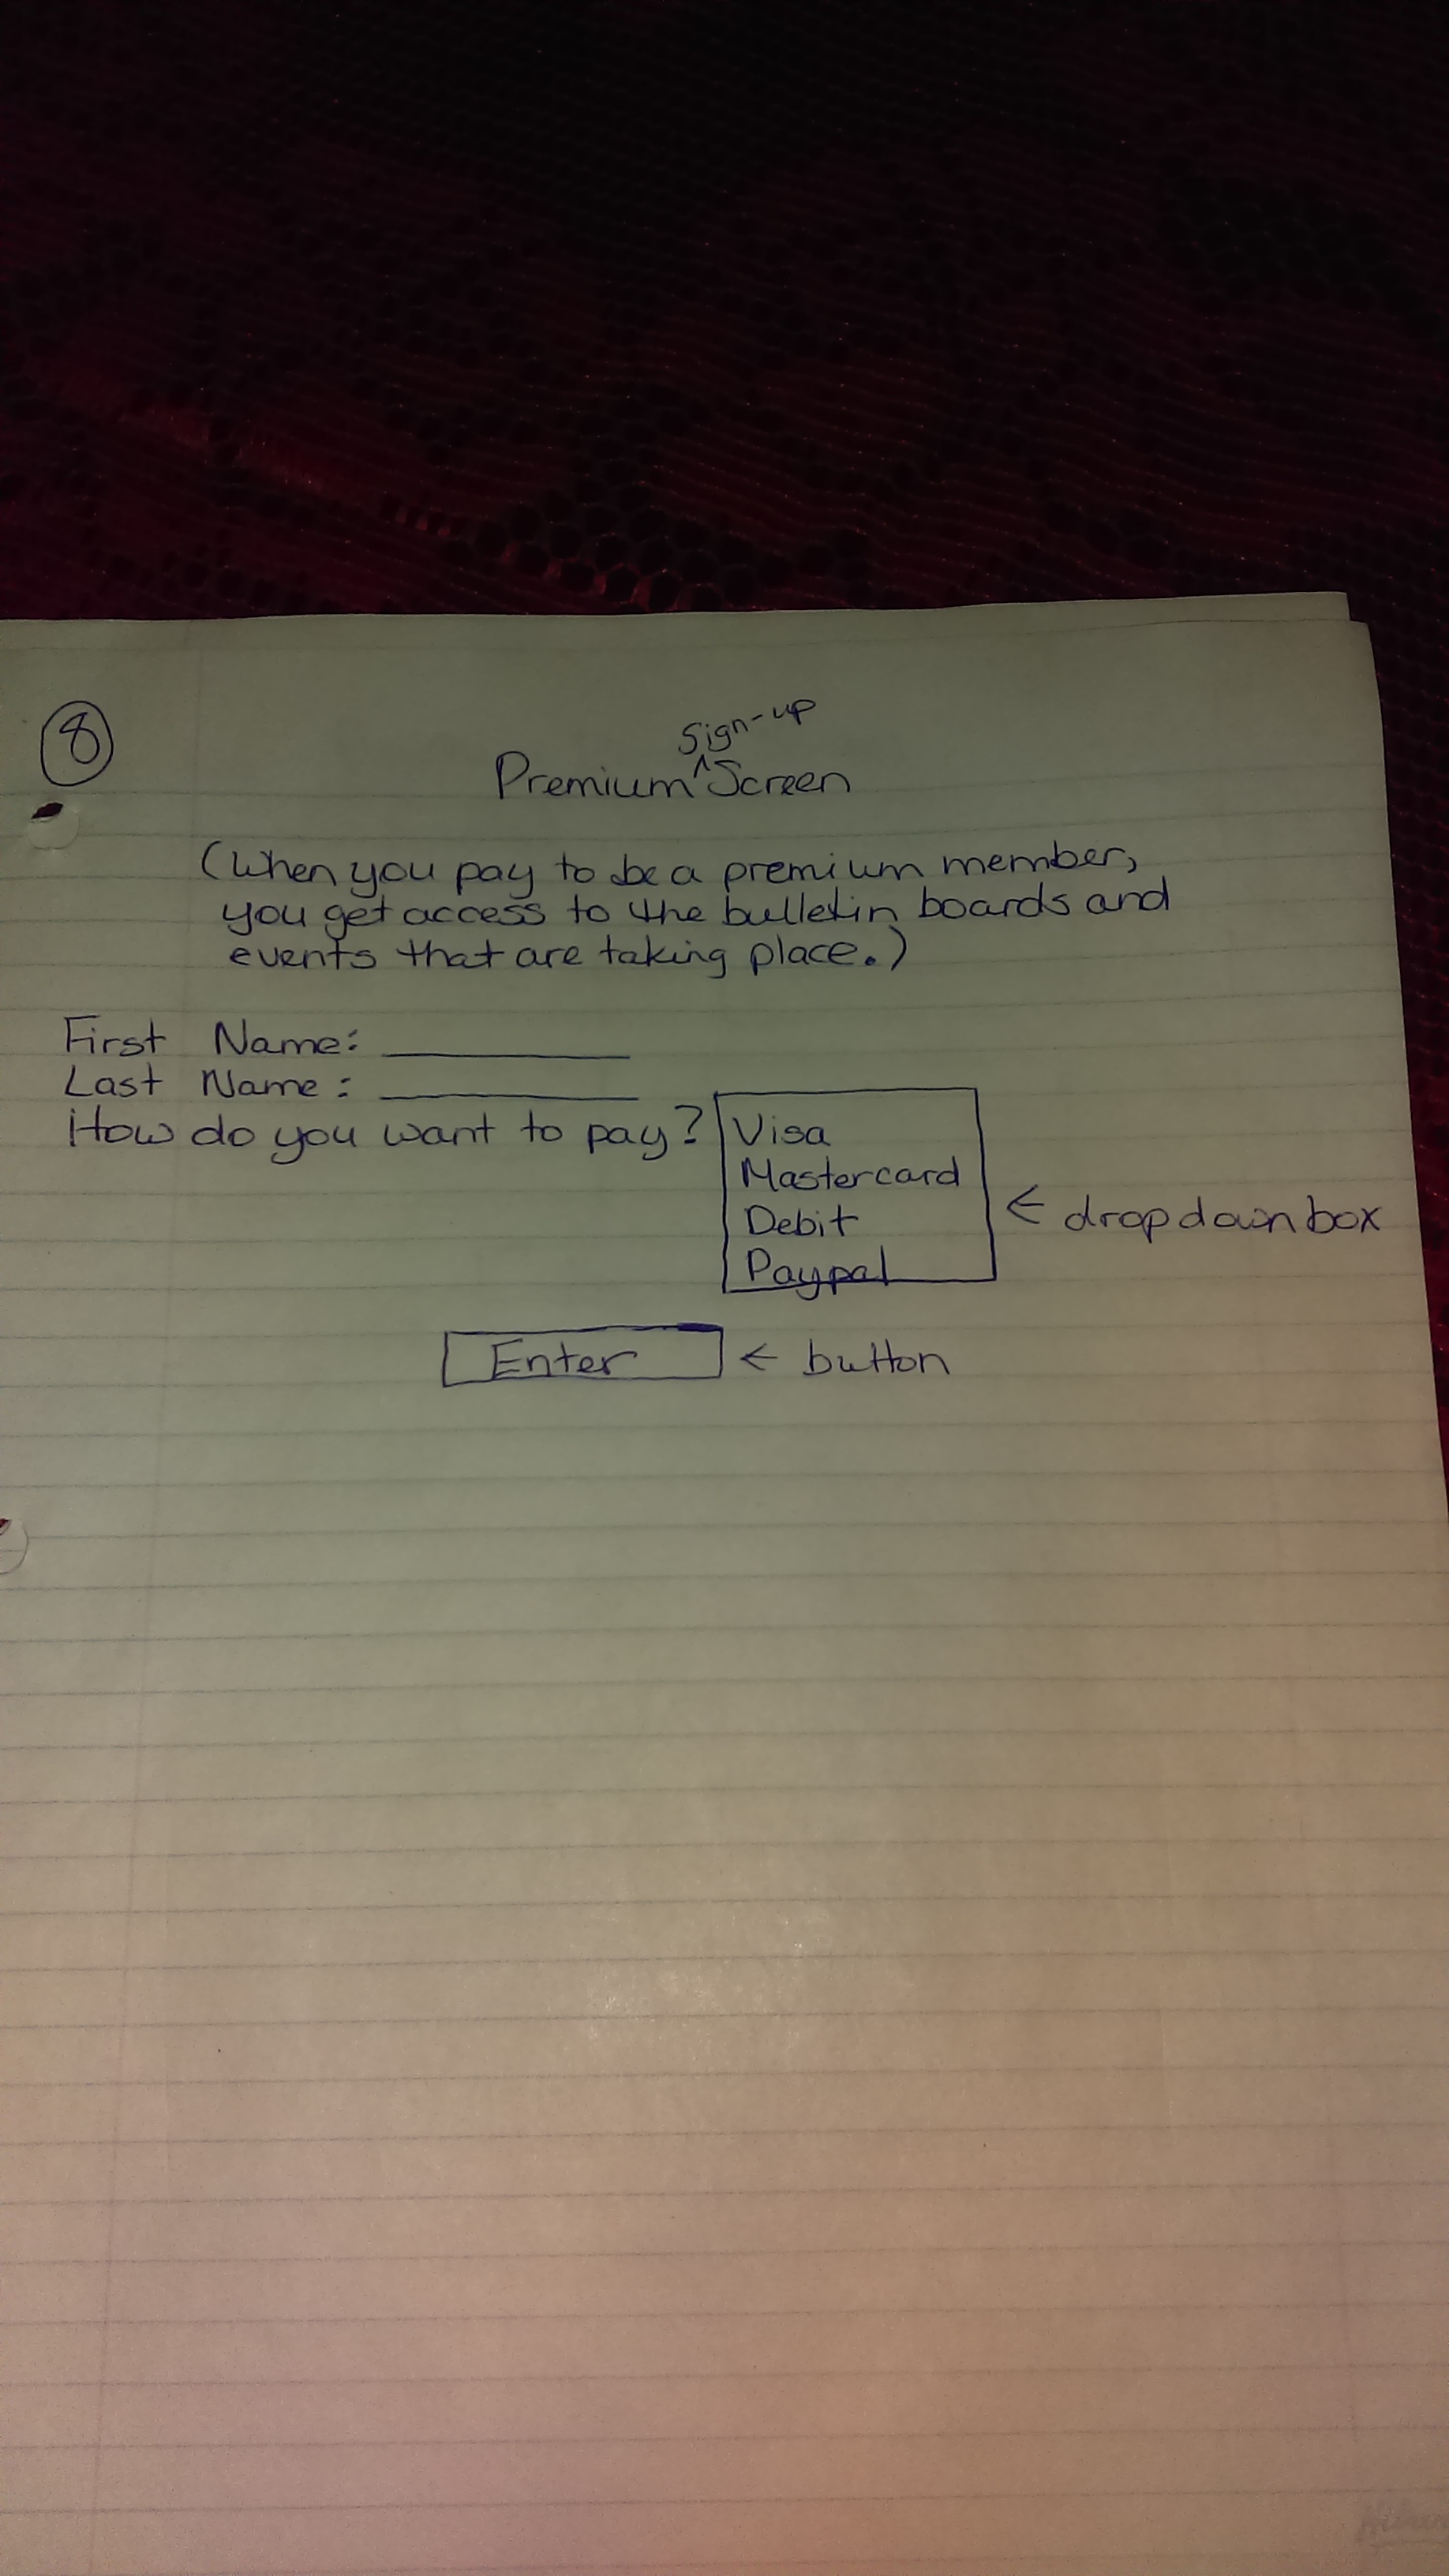 8
Premium Sign-up Screen
(When you pay to be a premium member,
you get access to the bulletin boards and
events that are taking place.)
First Name:
Last Name:
How do you want to pay? Visa
Mastercard
Debit
Paypal
← drop down box
Enter ← button